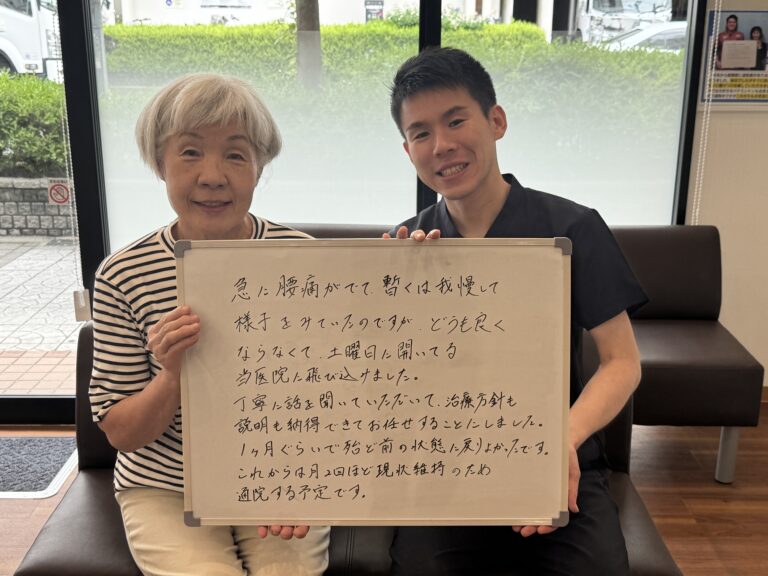 急に腰痛がでて、暫くは我慢して
様子をみていたのですが、どうも良く
ならなくて、土曜日に開いてる
当医院に飛び込みました。
丁寧に話を聞いていただいて、治療方針も
説明も納得できてお任せすることにしました。
1ヶ月ぐらいで殆ど前の状態に戻りよかったです。
これからは月2回ほど現状維持のため
通院する予定です。